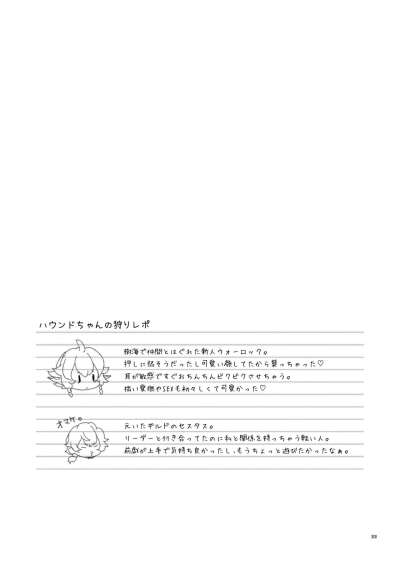 ハウンドちゃんの狩りレポ
樹海で仲間とはぐれた新人ウォーロック。
押しに弱そうだったし可愛い顔してたから襲っちゃった♡
耳が敏感ですぐおちんちんビクビクさせちゃう。
拙い愛撫やSEXも初々しくて可愛かった♡
オマケ。
元いたギルドのセスタス。
リーダーと付き合ってたのに私と関係を持っちゃう軽い人。
前戯が上手で気持ち良かったし、もうちょっと遊びたかったなぁ。